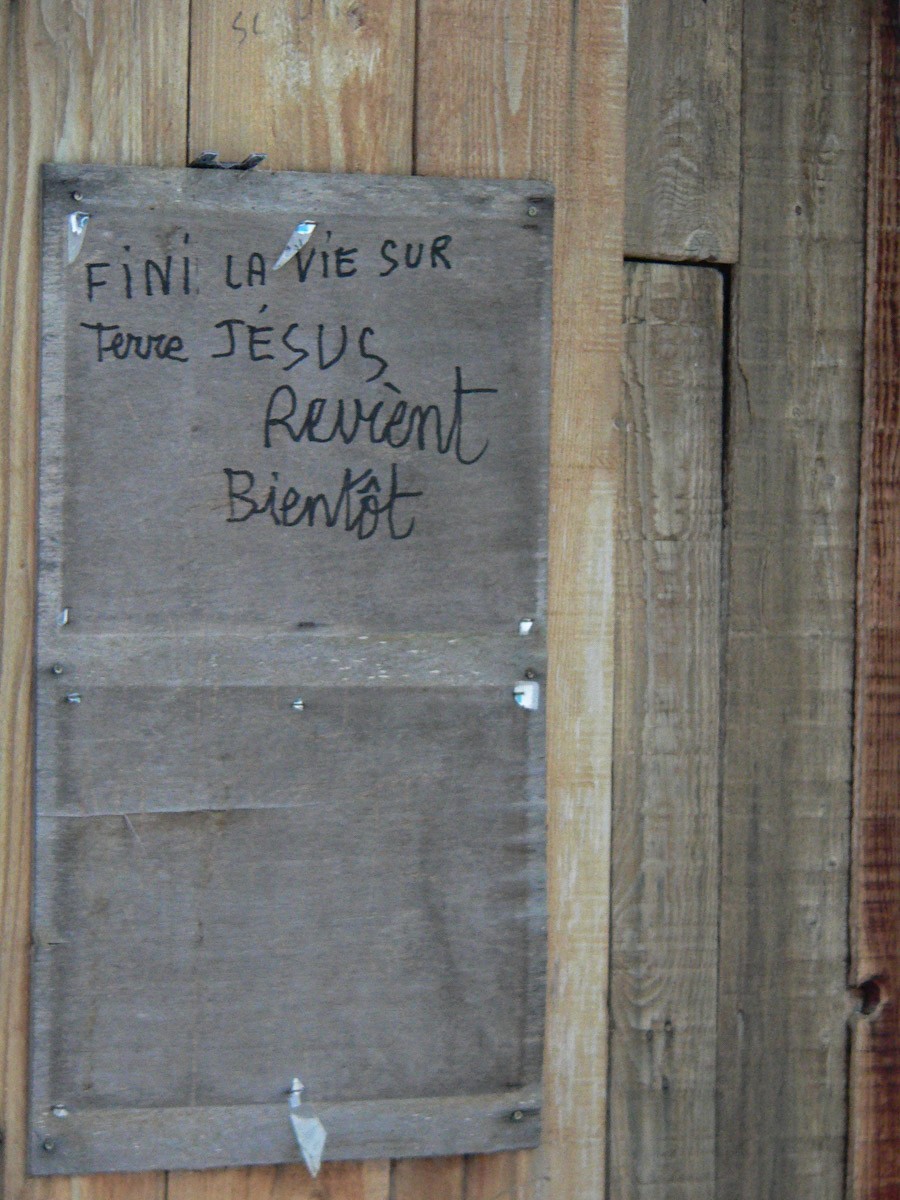 FiNi LA ViE SUR
Terre JÉSUS
Revient
Bientôt